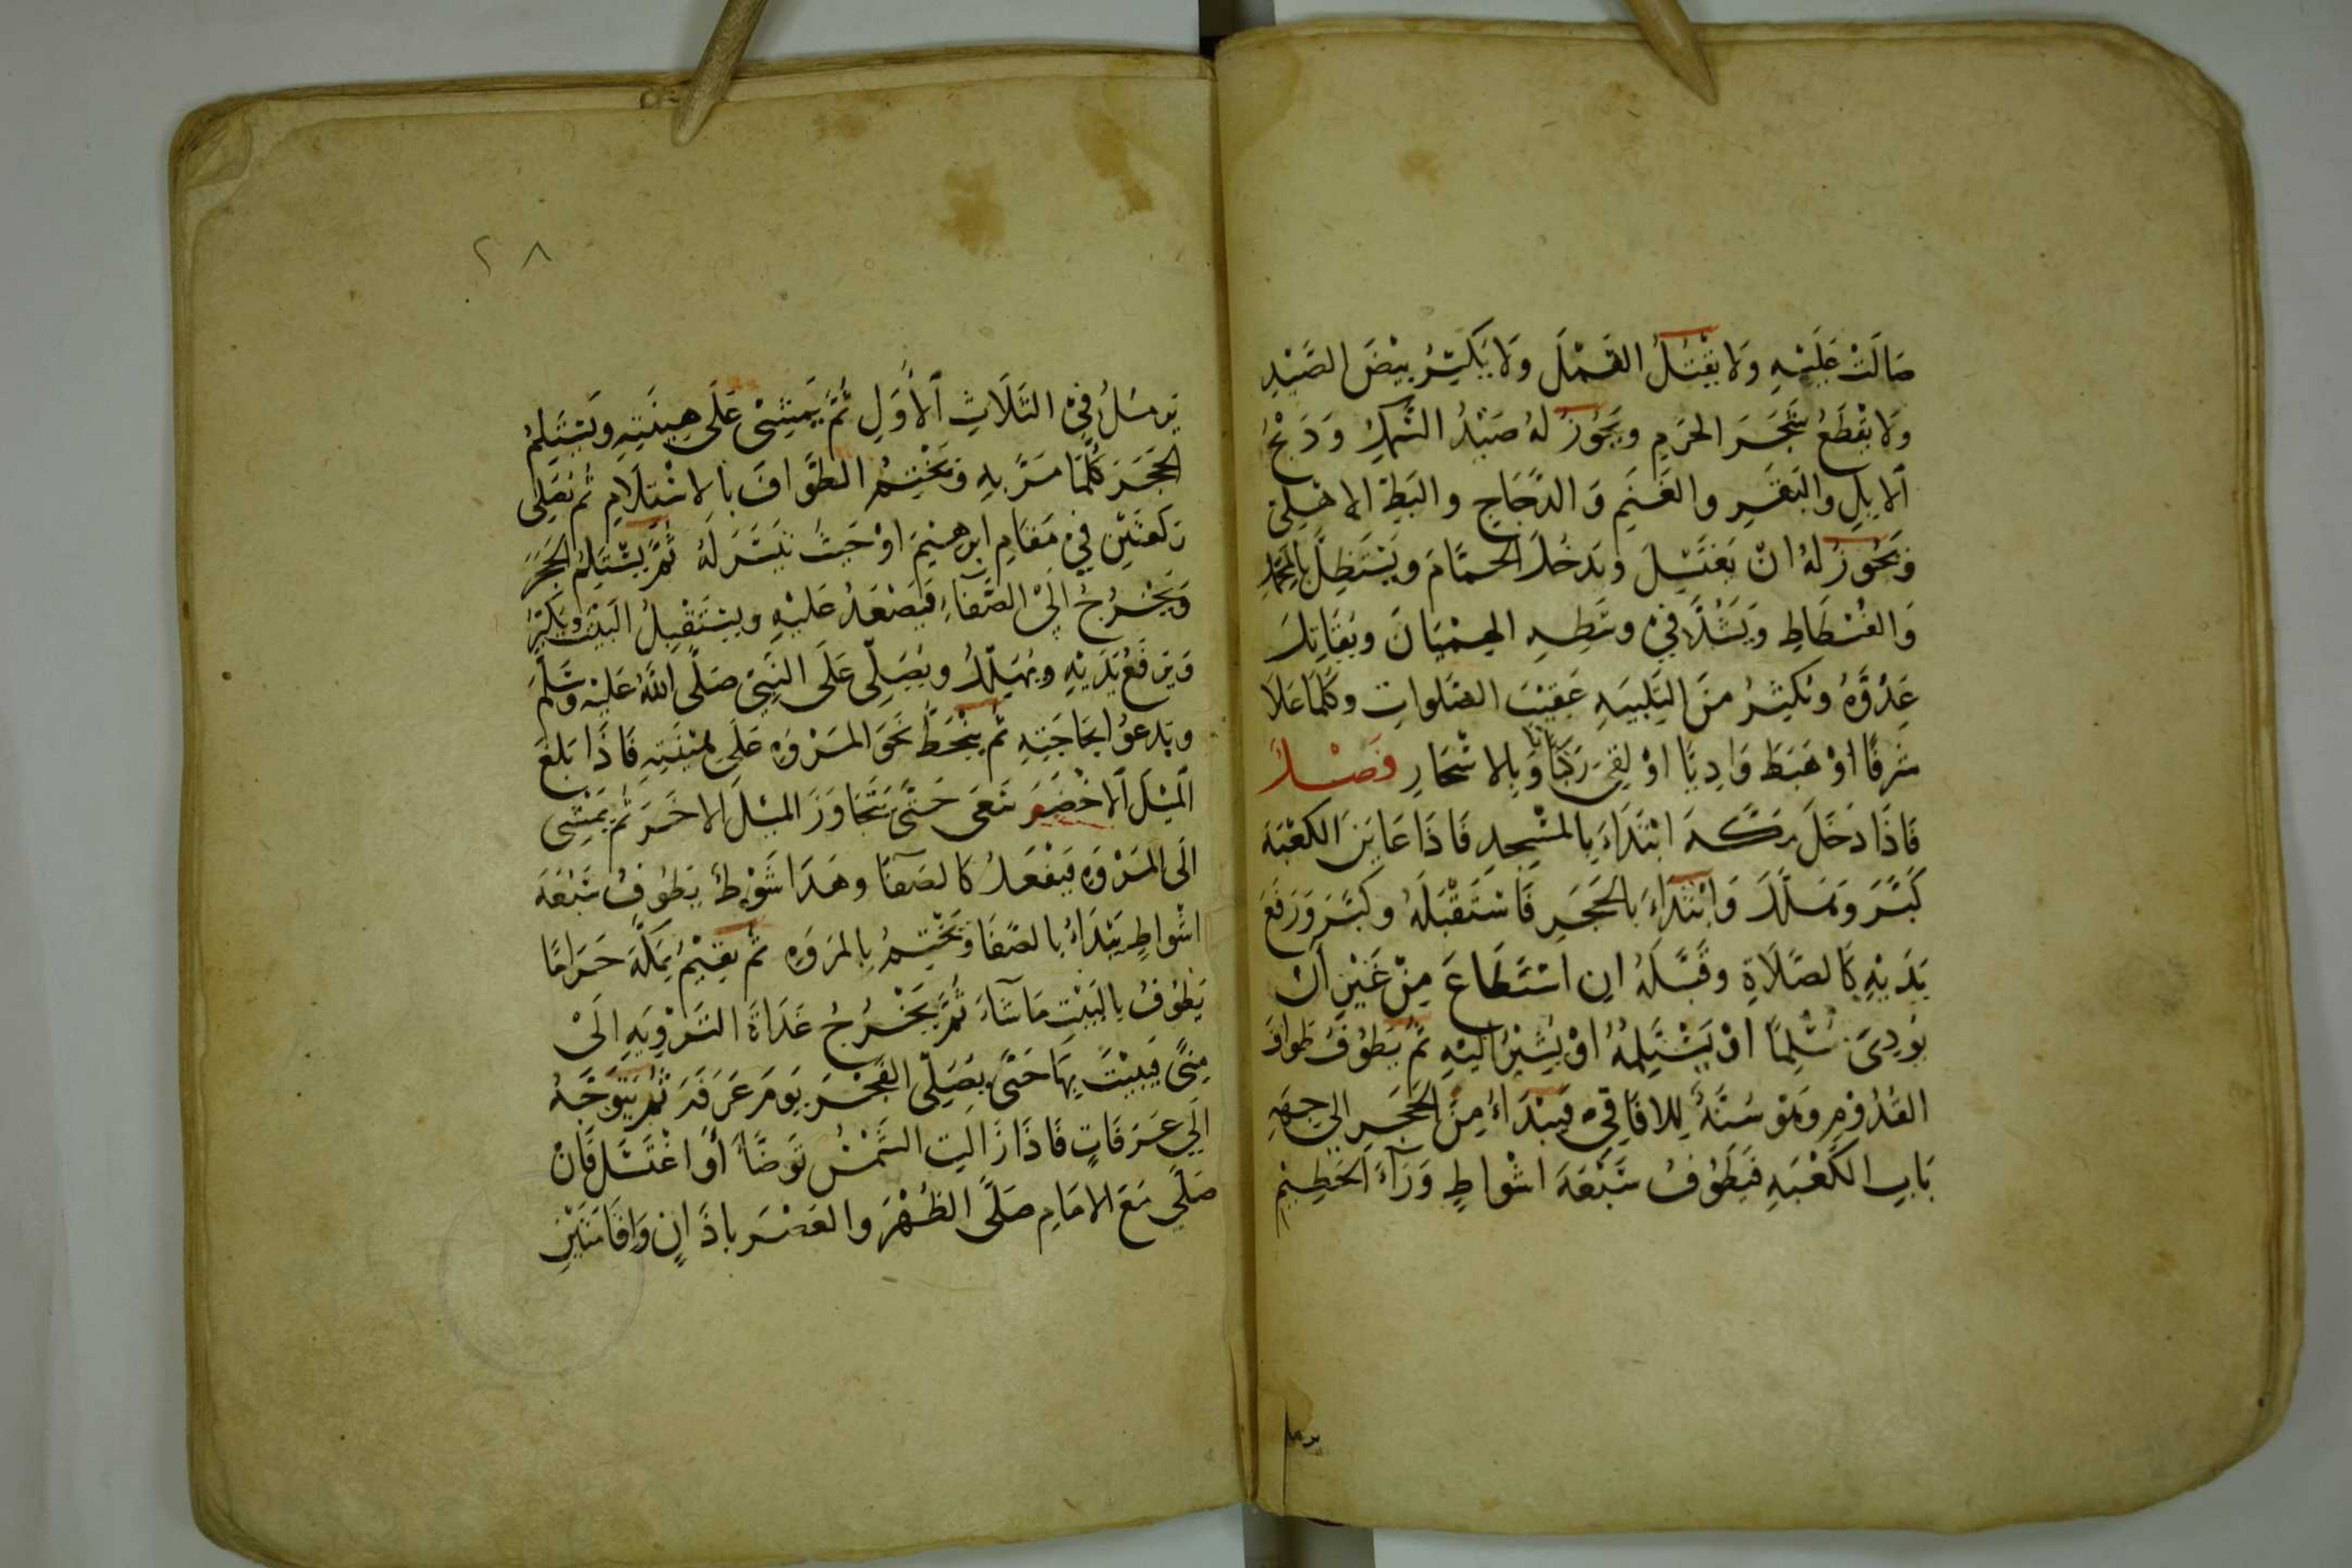 صَالَتْ عَلَيْهِ وَلا يَقْتُلُ القَمْلَ وَلا يَكْسِرُ بَيْضَ الصَّيْدِ
وَلا يَقْطَعُ شَجَرَ الحَرَمِ وَيَجُوزُ لَهُ صَيْدُ السَّمَكِ وَذَبْحُ
الإِبِلِ وَالبَقَرِ وَالغَنَمِ وَالدَّجَاجِ وَالبَطِّ الاهْلِيِّ
وَيَجُوزُ لَهُ انْ يَغْتَسِلَ وَيَدْخُلَ الحَمَّامَ وَيَسْتَظِلَّ بِالمَحْمِلِ
وَالفُسْطَاطِ وَيَشُدَّ فِيْ وَسَطِهِ الهِمْيَانَ وَيُقَاتِلَ
عَدُوَّهُ وَيُكْثِرُ مِنَ التَلْبِيَهِ عَقِيْبَ الصَّلَواتِ وَكُلَّمَا عَلَا
شَرَفًا اوْ هَبَطَ وَادِيًا اوْ لَقِيَ رَكْبًا وَبِالاسْحَارِ فَصْلٌ
فَاذَا دَخَلَ مَكَّهَ ابْتَدَاءَ بِالمَسْجِدِ فَاذَا عَايَنَ الكَعْبَهَ
كَبَّرَ وَهَلَّلَ وَابْتَدَاءَ بِالحَجَرِ فَاسْتَقْبَلَهُ وَكَبَّرَ وَرَفَعَ
يَدَيْهِ كَالصَّلَاةِ وَقَبَّلَهُ انِ اسْتَطَاعَ مِنْ غَيْرِ أَنْ
يُوذِىَ مُسْلِمًا اوْ يَسْتَلِمُهُ اوْ يُشِيْرُ الَيْهِ ثُمَّ يَطُوْفُ طَوافَ
القُدُوْمِ وَهُوَ سُنَّةٌ لِلافَاقِيِّ فَيَبْدَاءُ مِنَ الحَجَرِ الى جِهَهِ
بَابِ الكَعْبَهِ فَيَطُوْفُ سَبْعَةَ اشْوَاطٍ وَرَآءَ الحَطِيْمِ
يرمل
٢٨
يَرْمُلُ فِيْ الثَّلَاثِ الأُوَلِ ثُمَّ يَمْشِىْ عَلَى هِيْنَتِهِ وَيَسْتَلِمُ
الحَجَرَ كُلَّمَا مَرَّ بِهِ وَيَخْتِمُ الطَّوَافَ بِالاسْتِلَامِ ثُمَّ يُصَلِّى
رَكْعَتَيْنِ فِيْ مَقَامِ ابْرهِيْمَ اوْ حَيْثُ تَيَسَّرَ لَهُ ثُمَّ يَسْتَلِمُ الحَجَرَ
وَيَخْرُجُ الَىْ الصَّفَاءِ فَيَصْعَدُ عَلَيْهِ وَيَسْتَقْبِلُ البَيْتَ وَيُكَبِّرُ
وَيَرْفَعُ يَدَيْهِ وَيُهَلِّلُ وَيُصَلِّى عَلَى النَّبِيِّ صَلَّى اللّٰهُ عَلَيْهِ وَسَلَّمَ
وَيَدْعُوْ لحَاجَتِهِ ثُمَّ يَنْحَطُّ نَحْوَ المَرْوَهِ عَلَى هِيْنَتِهِ فَاذَا بَلَغَ
المِيْلَ الاخْضَرَ سَعَى حَتَّى يَتَجَاوَزَ المِيْلَ الاخَرَ ثُمَّ يَمْشِى
الَى المَرْوَهِ فَيَفْعَلُ كَالصَفَا وَهَذَا شَوْطٌ يَطُوْفُ سَبْعَةَ
اشْوَاطٍ يَبْدَاءُ بِالصَّفَا وَيَخْتِمُ بِالمَرْوَهِ ثُمَّ يُقِيْمُ بِمَكَّةَ حَرَامًا
يَطُوْفُ بِالبَيْتِ مَا شَاءَ ثُمَّ يَخْرُجُ غَدَاةَ التَّرْوِيَهِ الَىْ
مِنًى فَيَبِيْتُ بِهَا حَتَّى يُصَلِّى الفَجْرَ يَوْمَ عَرَفَهَ ثُمَّ يَتَوَجَّهُ
الَي عَرَفَاتٍ فَاذَا زَالَتِ الشَّمْسُ تَوَضَّأَ أَوْ اغْتَسَلَ فَانْ
صَلَّى مَعَ الامَامِ صَلَّى الظُّهْرَ وَالعَصْرَ باذَانٍ وَاِقَامَتَيْنِ